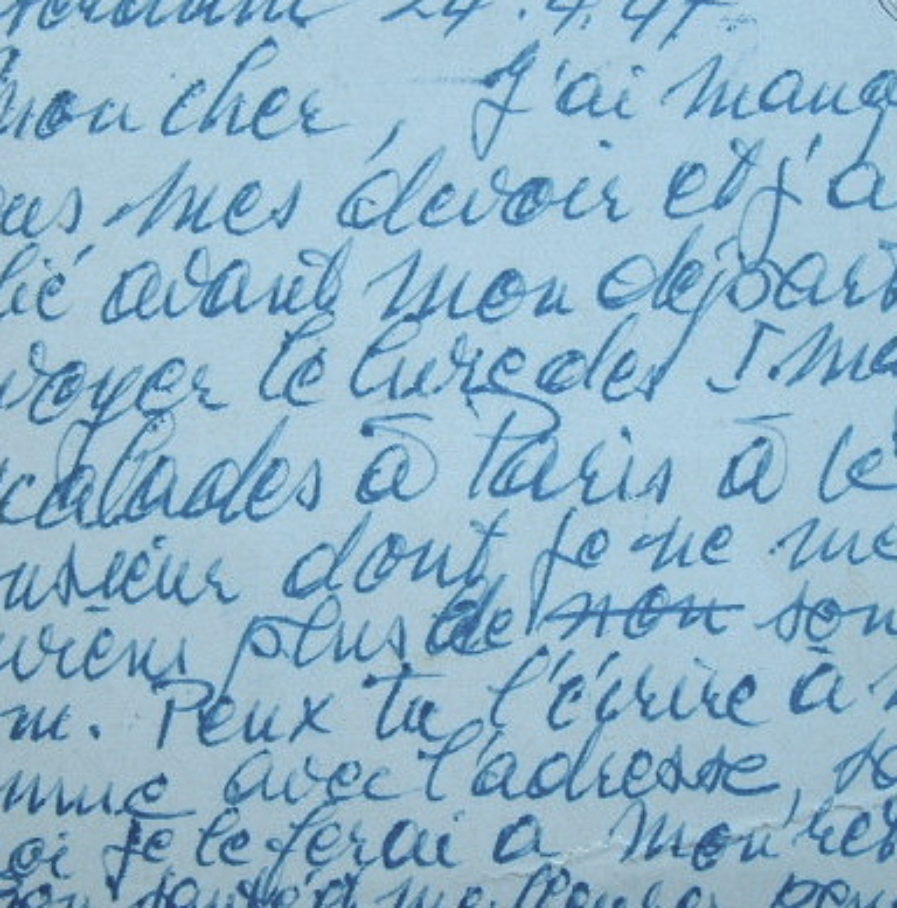 24.4.47
mon cher, J'ai manq
ous mes devoir et j'a
lié avant mon départ
voyer le livre des I. me
calades à Paris à ce
nsieur dont je ne me
viens plus de non son
m. Peux tu l'écrire à
mme avec l'adresse, so
oi je le ferai a mon ret